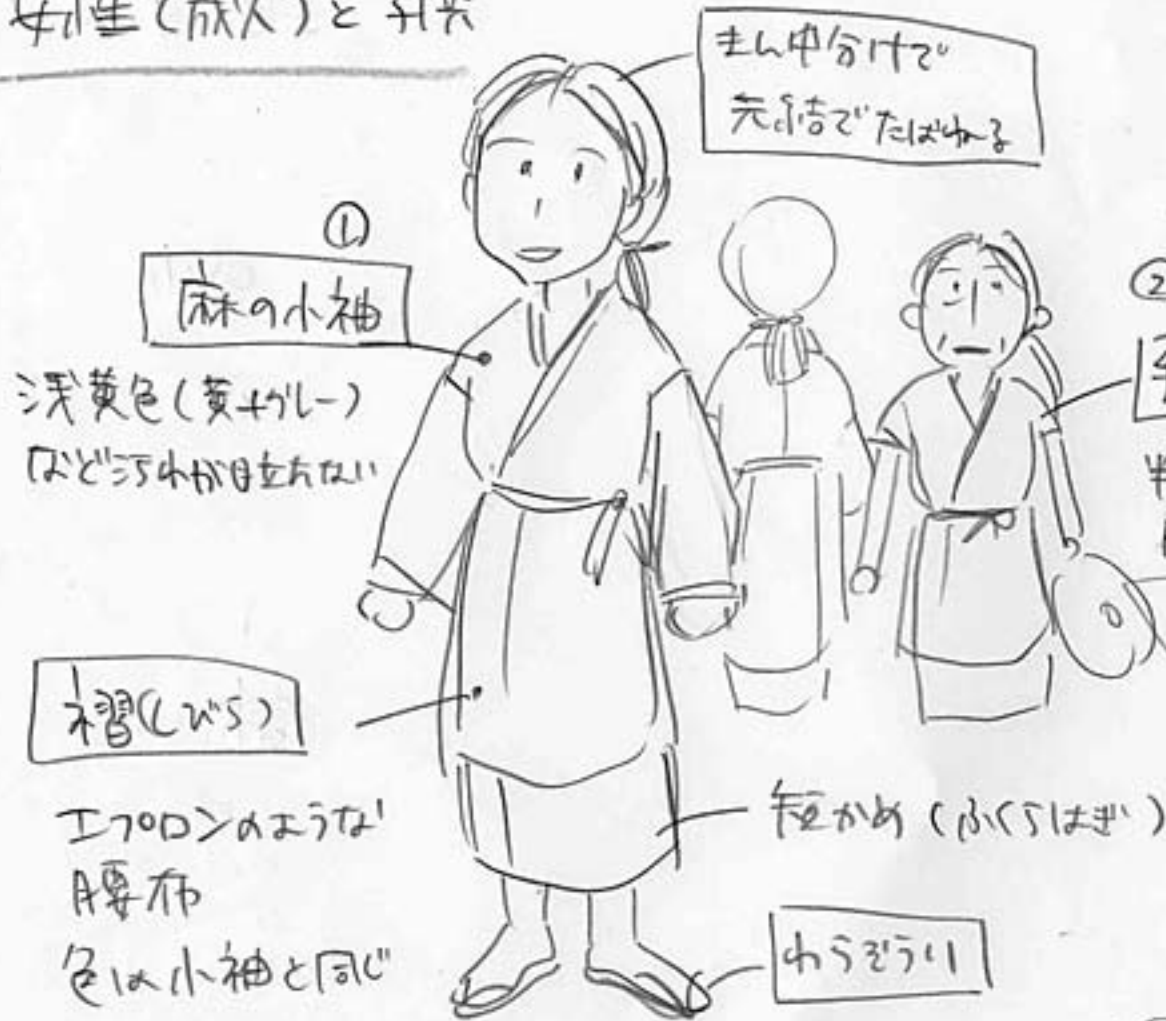 女性(成人)と
まん中分けで
元結でたばねる
①
麻の小袖
浅黄色(黄+グレー)
など汚れが目立たない
②
褶(しびら)
エプロンのような
腰布
色は小袖と同じ
短かめ(ふくらはぎ)
わらぞうり